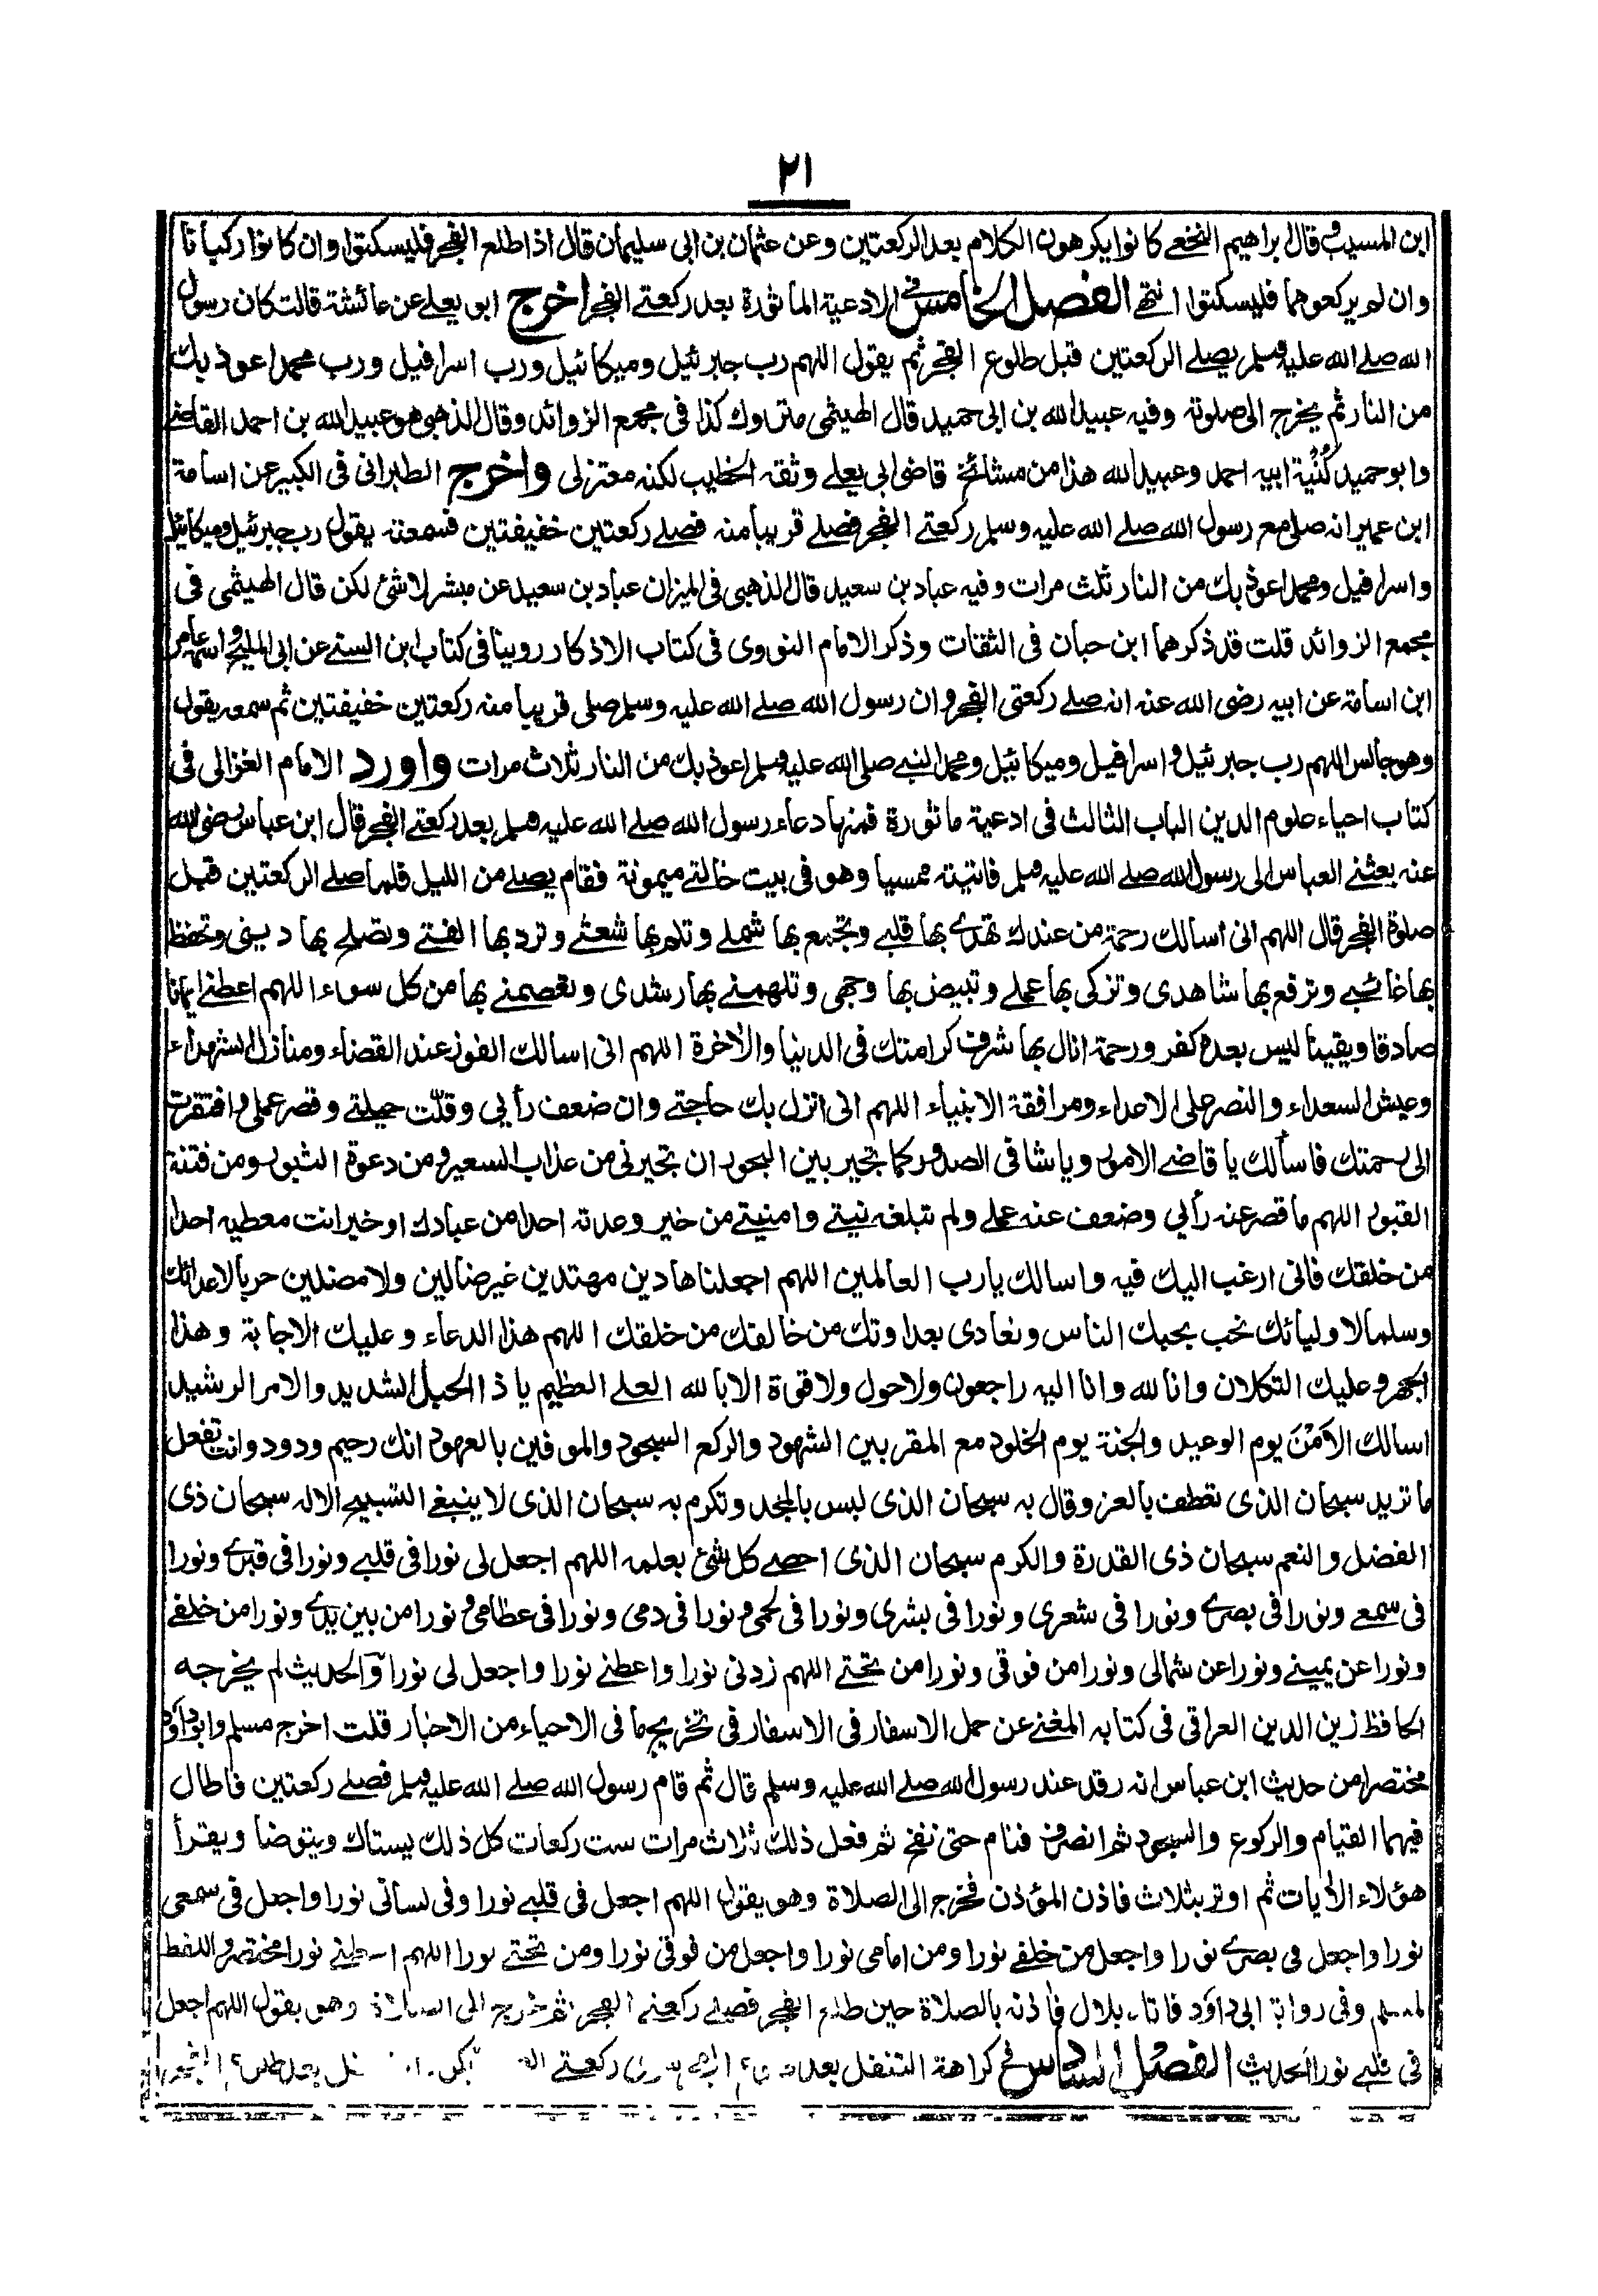 ٢١
ابن المسيب وقال ابراهيم النخعي كانوا يكرهون الكلام بعد الركعتين وعن عثمان بن ابى سليمان قال اذا طلع الفجر فليسكتوا وان كانوا ركبانا
وان لم يركعوهما فليسكتوا انتهى الفصل الخامس فى الادعية الماثورة بعد ركعتى الفجر اخرج ابو يعلى عن عائشة قالت كان رسول
الله صلى الله عليه وسلم يصلى الركعتين قبل طلوع الفجر ثم يقول اللهم رب جبرئيل وميكائيل ورب اسرافيل ورب محمد اعوذ بك
من النار ثم يخرج الى صلوته وفيه عبيد الله بن ابى حميد قال الهيثمى متروك كذا فى مجمع الزوائد وقال الذهبى هو عبيد الله بن احمد القاضى
وابو حميد كُنْيَة ابيه احمد وعبيد الله هذا من مشائخ قاضى ابى يعلى وثقه الخطيب لكنه معتزلى واخرج الطبرانى فى الكبير عن اسامة
ابن عمير انه صلى مع رسول الله صلى الله عليه وسلم ركعتى الفجر فصلى قريبا منه فصلى ركعتين خفيفتين فسمعته يقول رب جبرئيل وميكائيل
واسرافيل ومحمد اعوذ بك من النار ثلث مرات وفيه عباد بن سعيد قال الذهبى فى الميزان عباد بن سعيد عن مبشر لا شئ لكن قال الهيثمى فى
مجمع الزوائد قلت قد ذكرهما ابن حبان فى الثقات وذكر الامام النووى فى كتاب الاذكار روينا فى كتاب ابن السنى عن ابى المليح واسمه عامر
ابن اسامة عن ابيه رضى الله عنه انه صلى ركعتى الفجر وان رسول الله صلى الله عليه وسلم صلى قريبا منه ركعتين خفيفتين ثم سمعه يقول
وهو جالس اللهم رب جبرئيل واسرافيل وميكائيل ومحمد النبى صلى الله عليه وسلم اعوذ بك من النار ثلاث مرات واورد الامام الغزالى فى
كتاب احياء علوم الدين الباب الثالث فى ادعية ماثورة فمنها دعاء رسول الله صلى الله عليه وسلم بعد ركعتى الفجر قال ابن عباس رضى الله
عنه بعثنى العباس الى رسول الله صلى الله عليه وسلم فاتيته ممسيا وهو فى بيت خالتى ميمونة فقام يصلى من الليل فلما صلى الركعتين قبل
صلوة الفجر قال اللهم انى اسالك رحمة من عندك تهدى بها قلبى وتجمع بها شملى وتلم بها شعثى وترد بها الفتى وتصلح بها دينى وتحفظ
بها غائبى وترفع بها شاهدى وتزكى بها عملى وتبيض بها وجهى وتلهمنى بها رشدى وتعصمنى بها من كل سوء اللهم اعطنى ايمانا
صادقا ويقينا ليس بعده كفر ورحمة انال بها شرف كرامتك فى الدنيا والأخرة اللهم انى اسالك الفوز عند القضاء ومنازل الشهداء
وعيش السعداء والنصر على الاعداء ومرافقة الانبياء اللهم انى انزل بك حاجتى وان ضعف رأيى وقلّت حيلتى وقصر عملى وافتقرت
الى رحمتك فاسألك يا قاضى الامور ويا شافى الصدور كما تجير بين البحور ان تجيرنى من عذاب السعير ومن دعوة الثبور ومن فتنة
القبور اللهم ما قصر عنه رأيى وضعف عنه عملى ولم تبلغه نيتى وامنيتى من خير وعدته احدا من عبادك او خير انت معطيه احدا
من خلقك فانى ارغب اليك فيه واسالك يا رب العالمين اللهم اجعلنا هادين مهتدين غير ضالين ولا مضلين حربا لاعدائك
وسلما لاوليائك نحب بحبك الناس ونعادى بعداوتك من خالفك من خلقك اللهم هذا الدعاء وعليك الاجابة وهذا
الجهد وعليك التكلان وانا لله وانا اليه راجعون ولا حول ولا قوة الا بالله العلى العظيم يا ذا الحبل الشديد والامر الرشيد
اسالك الاَمْنَ يوم الوعيد والجنة يوم الخلود مع المقربين الشهود والركع السجود والموفين بالعهود انك رحيم ودود وانت تفعل
ما تريد سبحان الذى تعطف بالعز وقال به سبحان الذى لبس بالمجد وتكرم به سبحان الذى لا ينبغى التسبيح الا له سبحان ذى
الفضل والنعم سبحان ذى القدرة والكرم سبحان الذى احصى كل شئ بعلمه اللهم اجعل لى نورا فى قلبى ونورا فى قبرى ونورا
فى سمعى ونورا فى بصرى ونورا فى شعرى ونورا فى بشرى ونورا فى لحمى ونورا فى دمى ونورا فى عظامى ونورا من بين يدى ونورا من خلفى
ونورا عن يمينى ونورا عن شمالى ونورا من فوقى ونورا من تحتى اللهم زدنى نورا واعطنى نورا واجعل لى نورا والحديث لم يخرجه
الحافظ زين الدين العراقى فى كتابه المغنى عن حمل الاسفار فى الاسفار فى تخريج ما فى الاحياء من الاخبار قلت اخرج مسلم وابو داؤد
مختصرا من حديث ابن عباس انه رقد عند رسول الله صلى الله عليه وسلم قال ثم قام رسول الله صلى الله عليه وسلم فصلى ركعتين فاطال
فيهما القيام والركوع والسجود ثم انصرف فنام حتى نفخ ثم فعل ذلك ثلاث مرات ست ركعات كل ذلك يستاك ويتوضا ويقرأ
هؤلاء الأيات ثم اوتر بثلاث فاذن المؤذن فخرج الى الصلاة وهو يقول اللهم اجعل فى قلبى نورا وفى لسانى نورا واجعل فى سمعى
نورا واجعل فى بصرى نورا واجعل من خلفى نورا ومن امامى نورا واجعل من فوقى نورا ومن تحتى نورا اللهم اعطنى نورا مختصر واللفظ
لمسلم وفى رواية ابى داؤد فاتاه بلال فاذنه بالصلاة حين طلع الفجر فصلى ركعتى الفجر ثم خرج الى الصلاة وهو يقول اللهم اجعل
فى قلبى نورا الحديث الفصل السادس فى كراهة التنفل بعد طلوع الفجر سوى ركعتى بعد طلوع الفجر